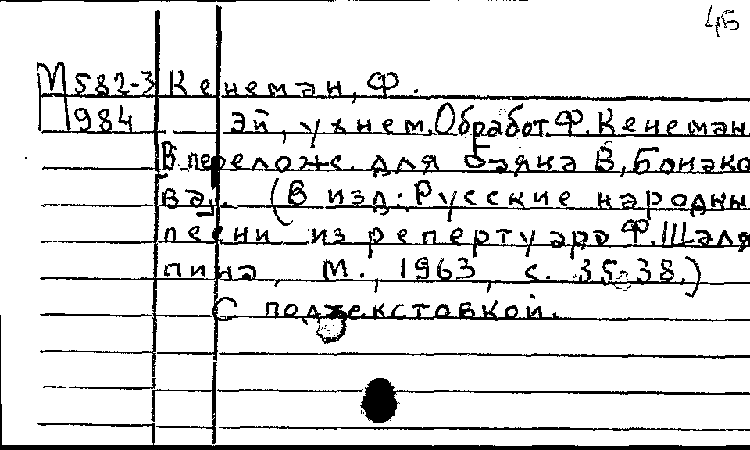 45
М582-3 Кенеман, Ф.
1984 Эй, ухнем. Обработ. Ф. Кенеман
В переложе. для баяна В. Бонако
ва. (В изд.: Русские народны
песни из репертуара Ф. Шаля
пина, М., 1963, с. 35-38.)
С подтекстовкой.